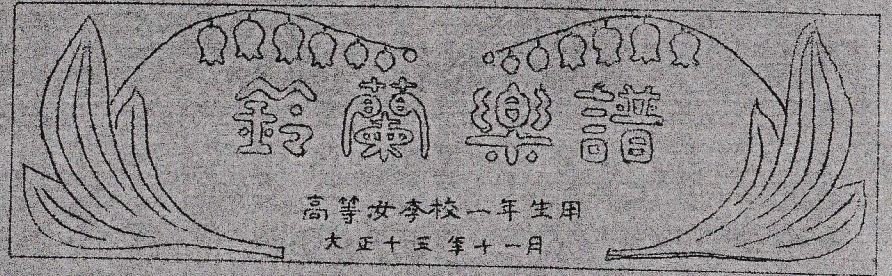 鈴蘭樂譜
高等女学校一年生用
大正十五年十一月